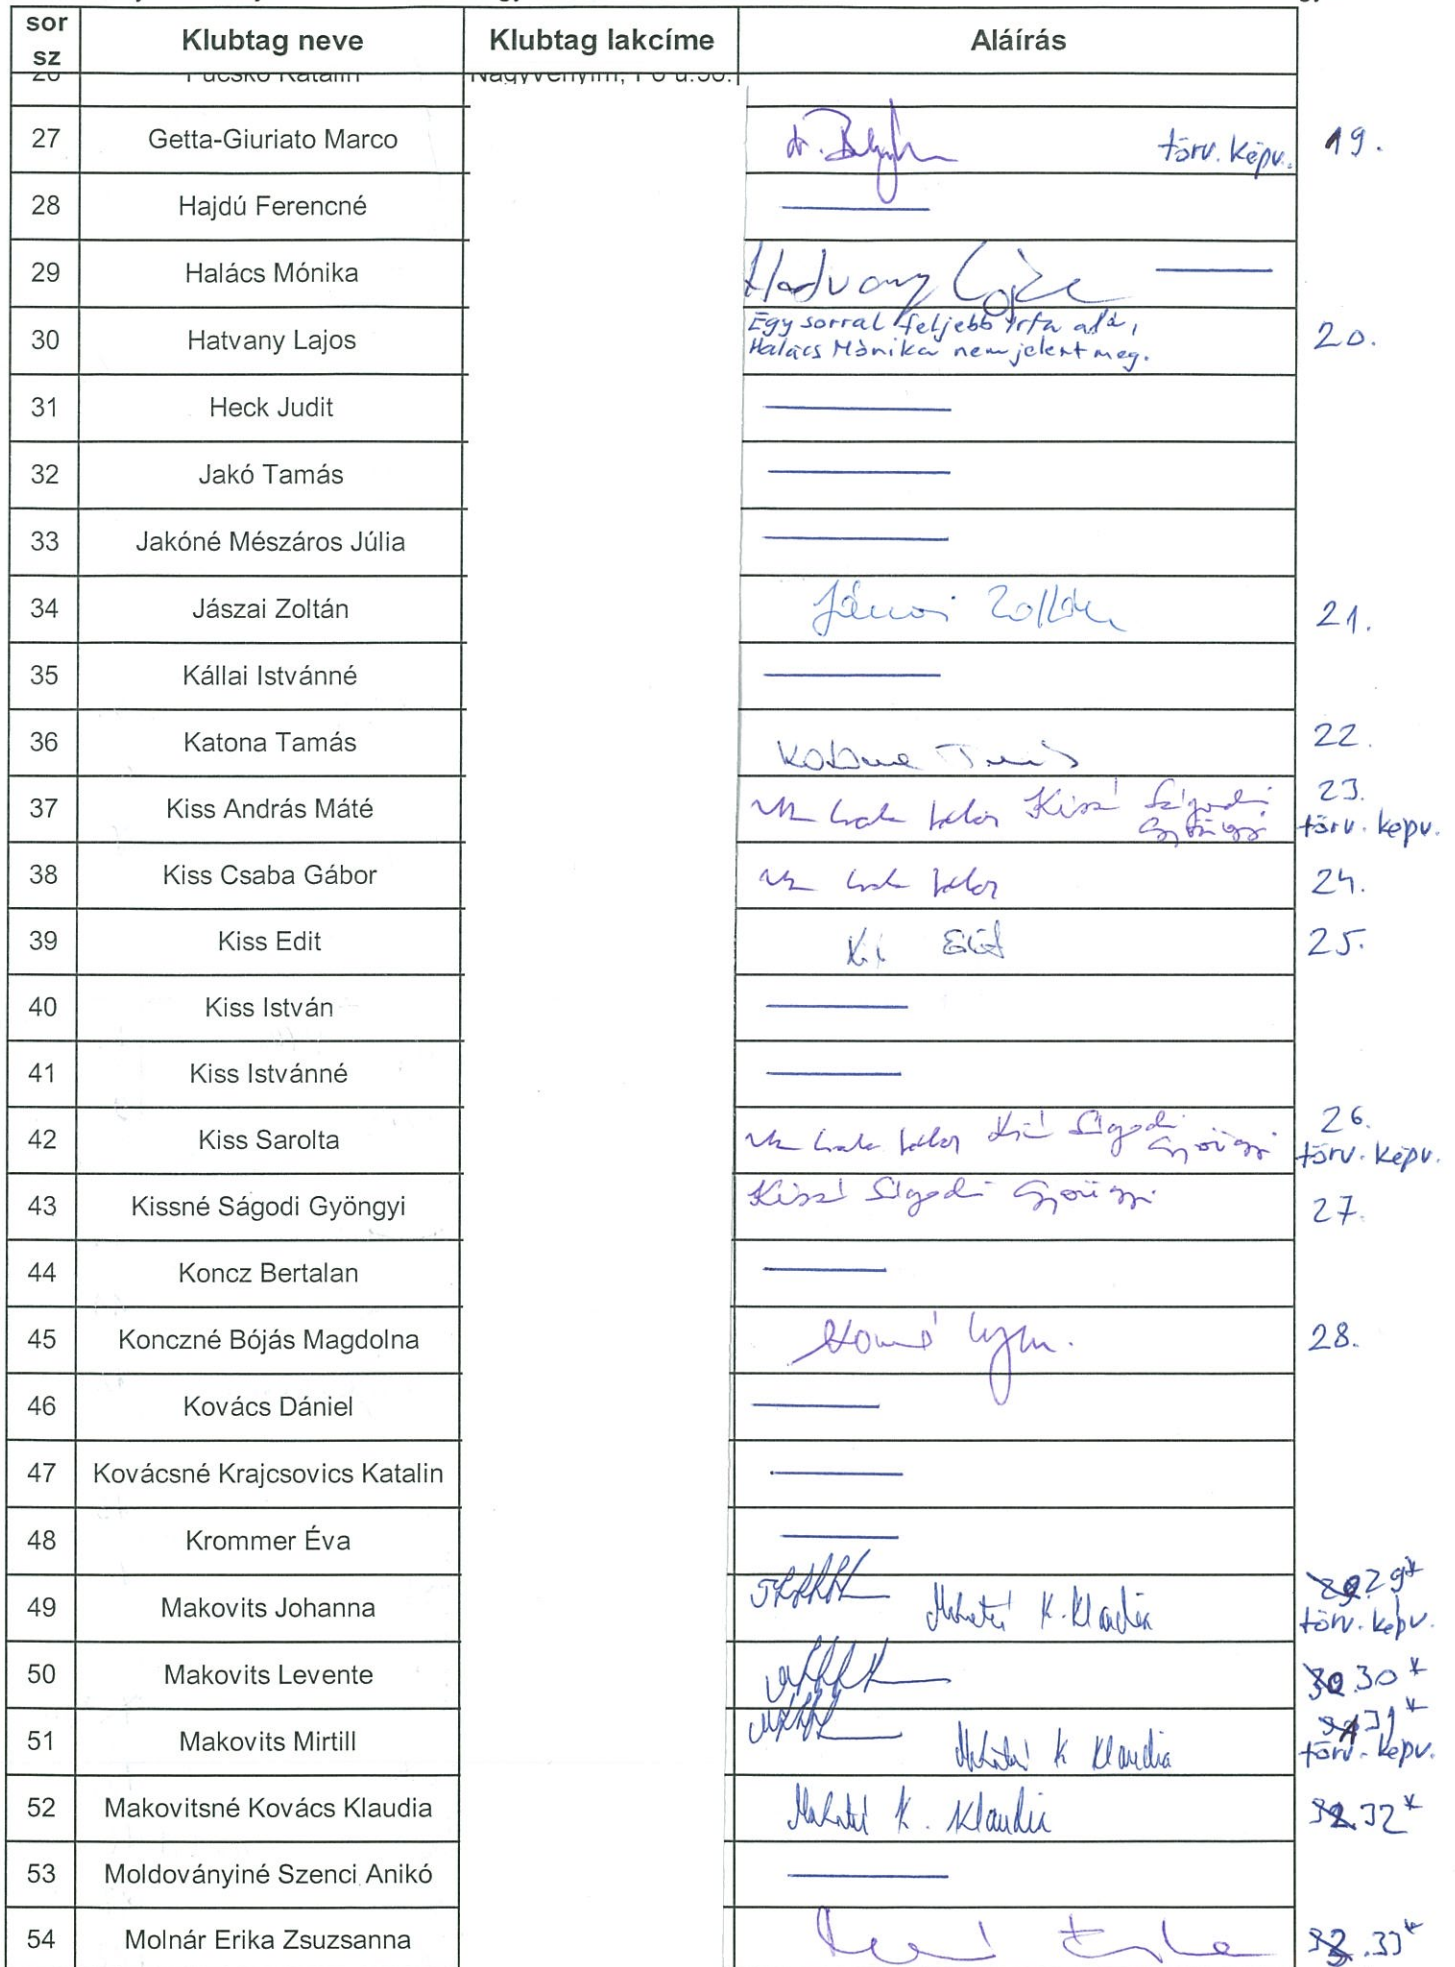 sor sz Klubtag neve Klubtag lakcíme Aláírás
26 Fucskó Katalin Nagyvenyim, Fő u.56.
27 Getta-Giuriato Marco törv. képv. 19.
28 Hajdú Ferencné
29 Halács Mónika Hatvany Lajos
30 Hatvany Lajos Egy sorral feljebb írta alá, 20.
Halács Mónika nem jelent meg.
31 Heck Judit
32 Jakó Tamás
33 Jakóné Mészáros Júlia
34 Jászai Zoltán Jászai Zoltán 21.
35 Kállai Istvánné
36 Katona Tamás Katona Tamás 22.
37 Kiss András Máté Kiss Csaba Gábor Kissné Ságodi Gyöngyi 23. törv. képv.
38 Kiss Csaba Gábor Kiss Csaba Gábor 24.
39 Kiss Edit Kiss Edit 25.
40 Kiss István
41 Kiss Istvánné
42 Kiss Sarolta Kiss Csaba Gábor Kissné Ságodi Gyöngyi 26. törv. képv.
43 Kissné Ságodi Gyöngyi Kissné Ságodi Gyöngyi 27.
44 Koncz Bertalan
45 Konczné Bójás Magdolna 28.
46 Kovács Dániel
47 Kovácsné Krajcsovics Katalin
48 Krommer Éva
49 Makovits Johanna Makovitsné K. Klaudia 29* törv. képv.
50 Makovits Levente 30*
51 Makovits Mirtill Makovitsné K Klaudia 31* törv. képv.
52 Makovitsné Kovács Klaudia Makovitsné K. Klaudia 32*
53 Moldoványiné Szenci Anikó
54 Molnár Erika Zsuzsanna Molnár Erika 33*